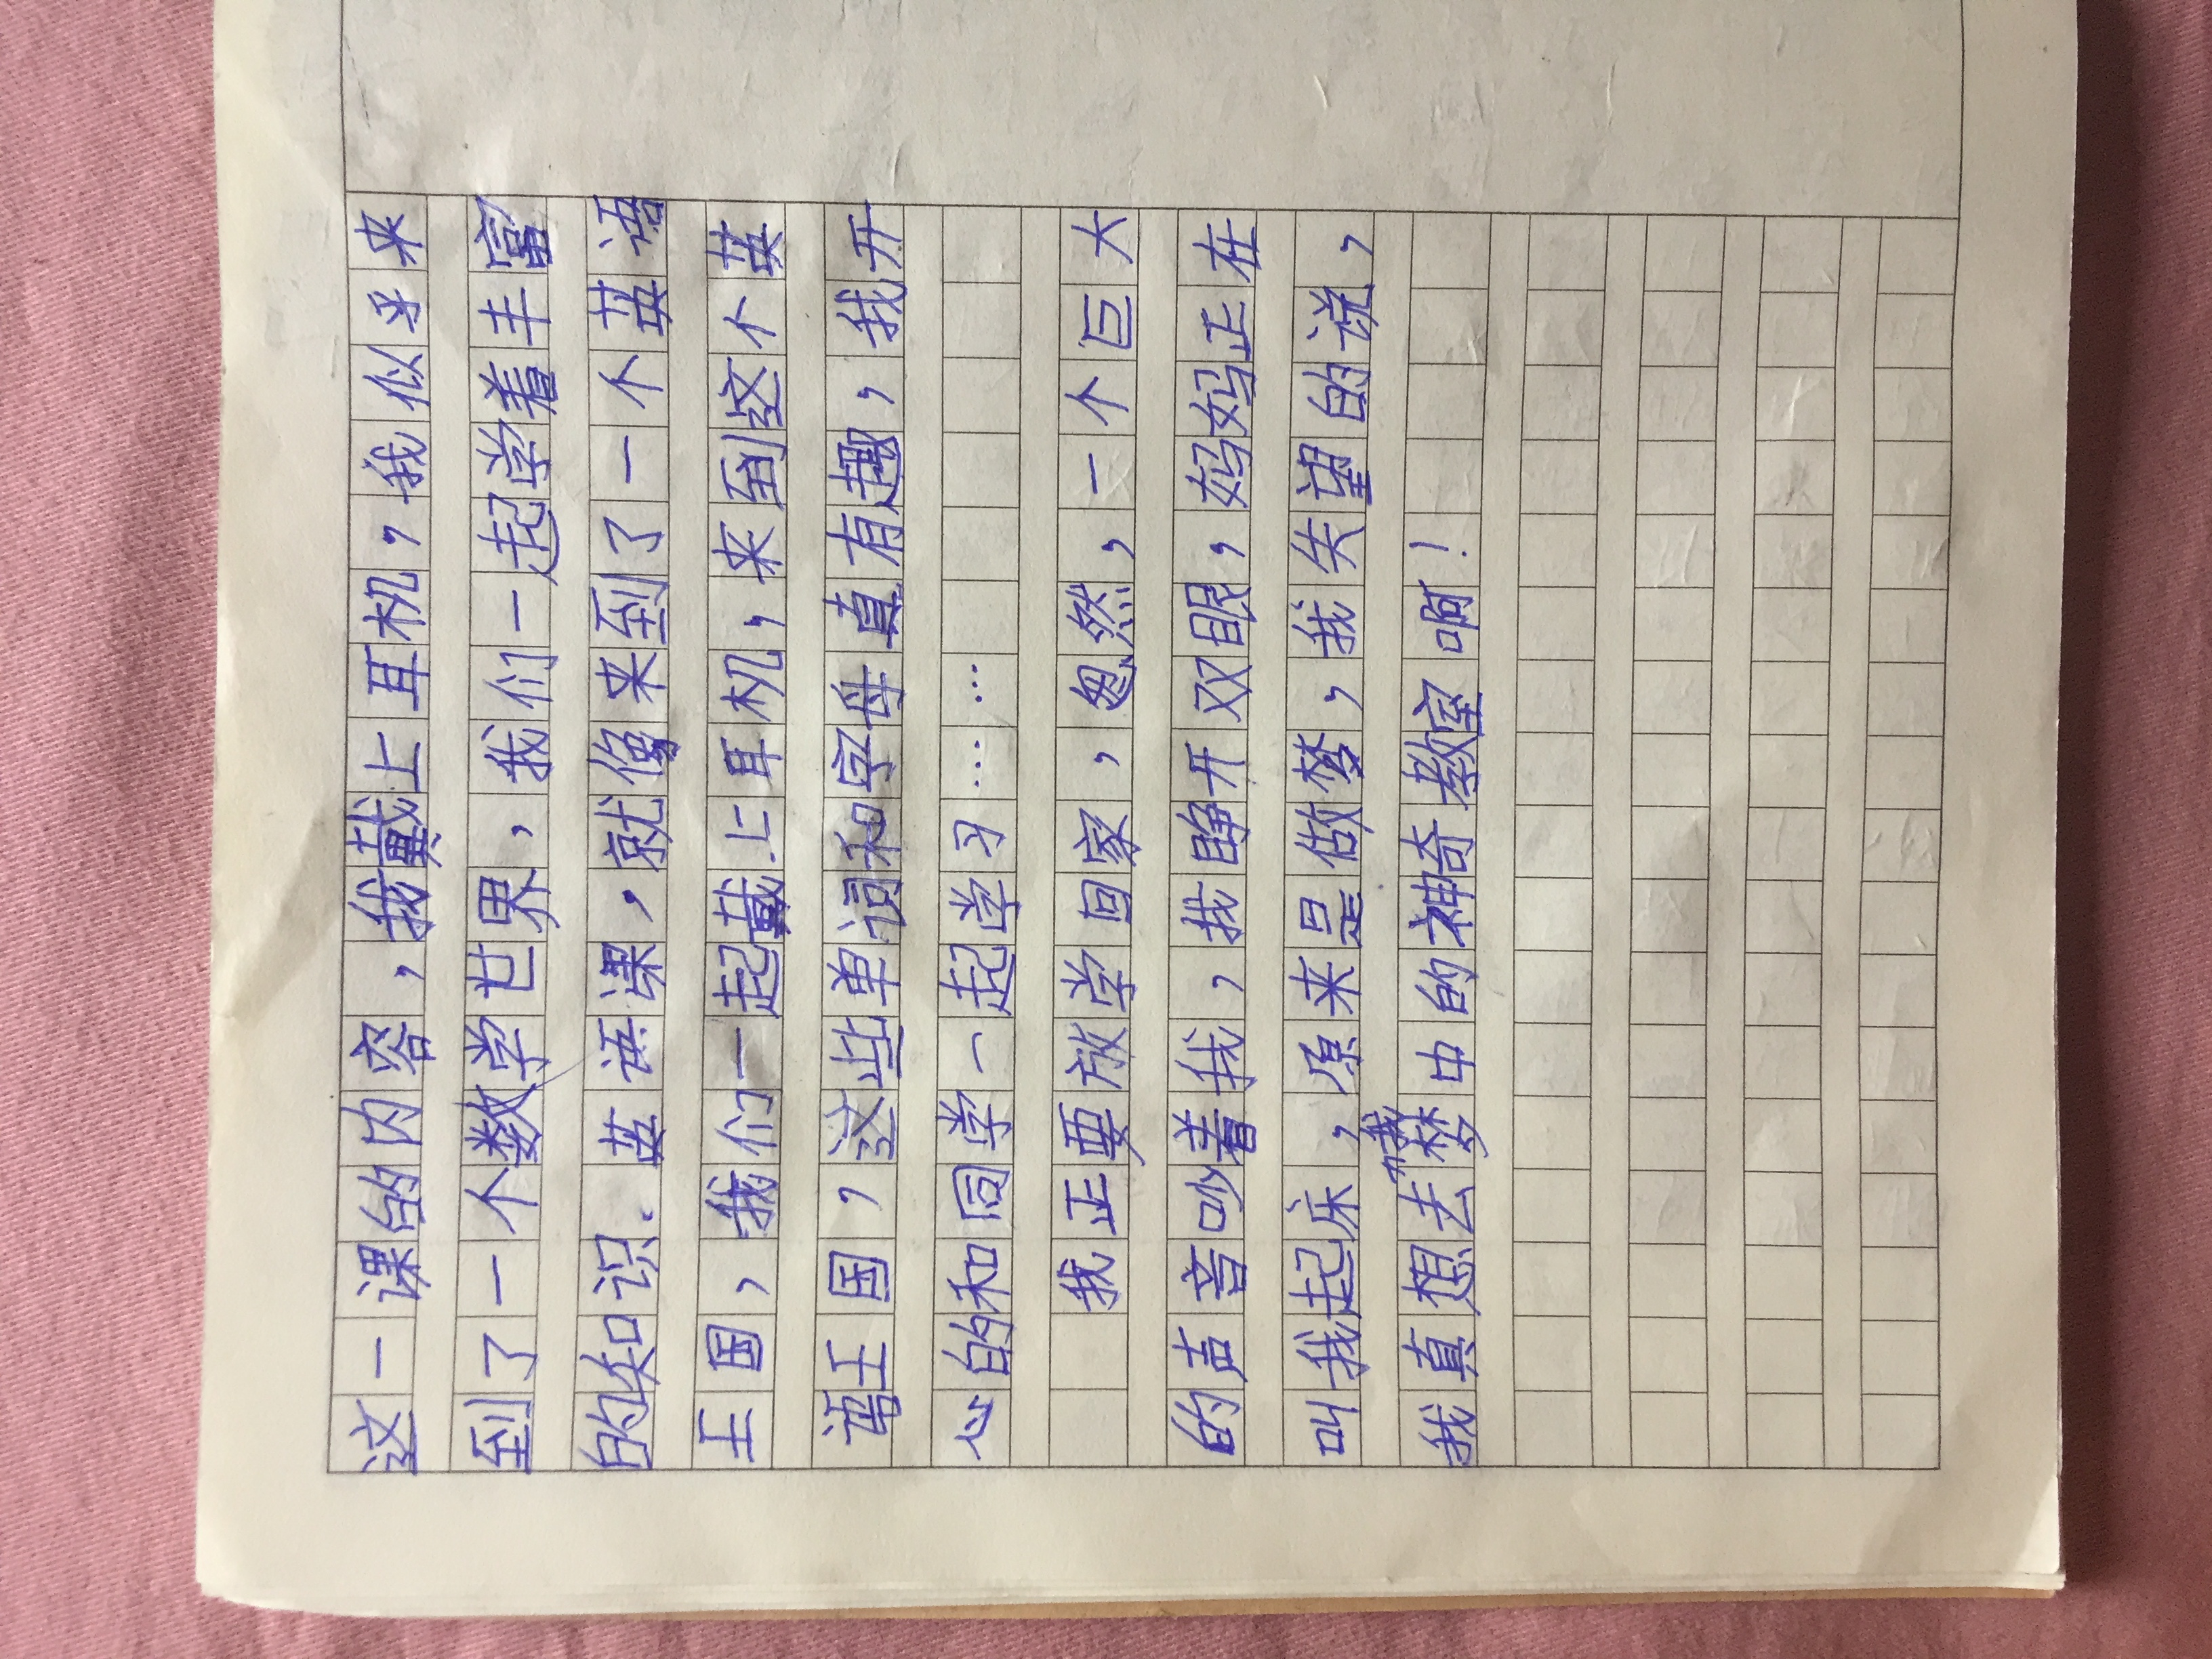 这一课的内容，我戴上耳机，我似乎来
到了一个数学世界，我们一起学着丰富
的知识。英语课，就像来到了一个英语
王国，我们一起戴上耳机，来到这个英
语王国，这些单词和字母真有趣，我开
心的和同学一起学习……
我正要放学回家，忽然，一个巨大
的声音吵着我，我睁开双眼，妈妈正在
叫我起床，原来是做梦，我失望的说，
我真想去梦中的神奇教室啊！